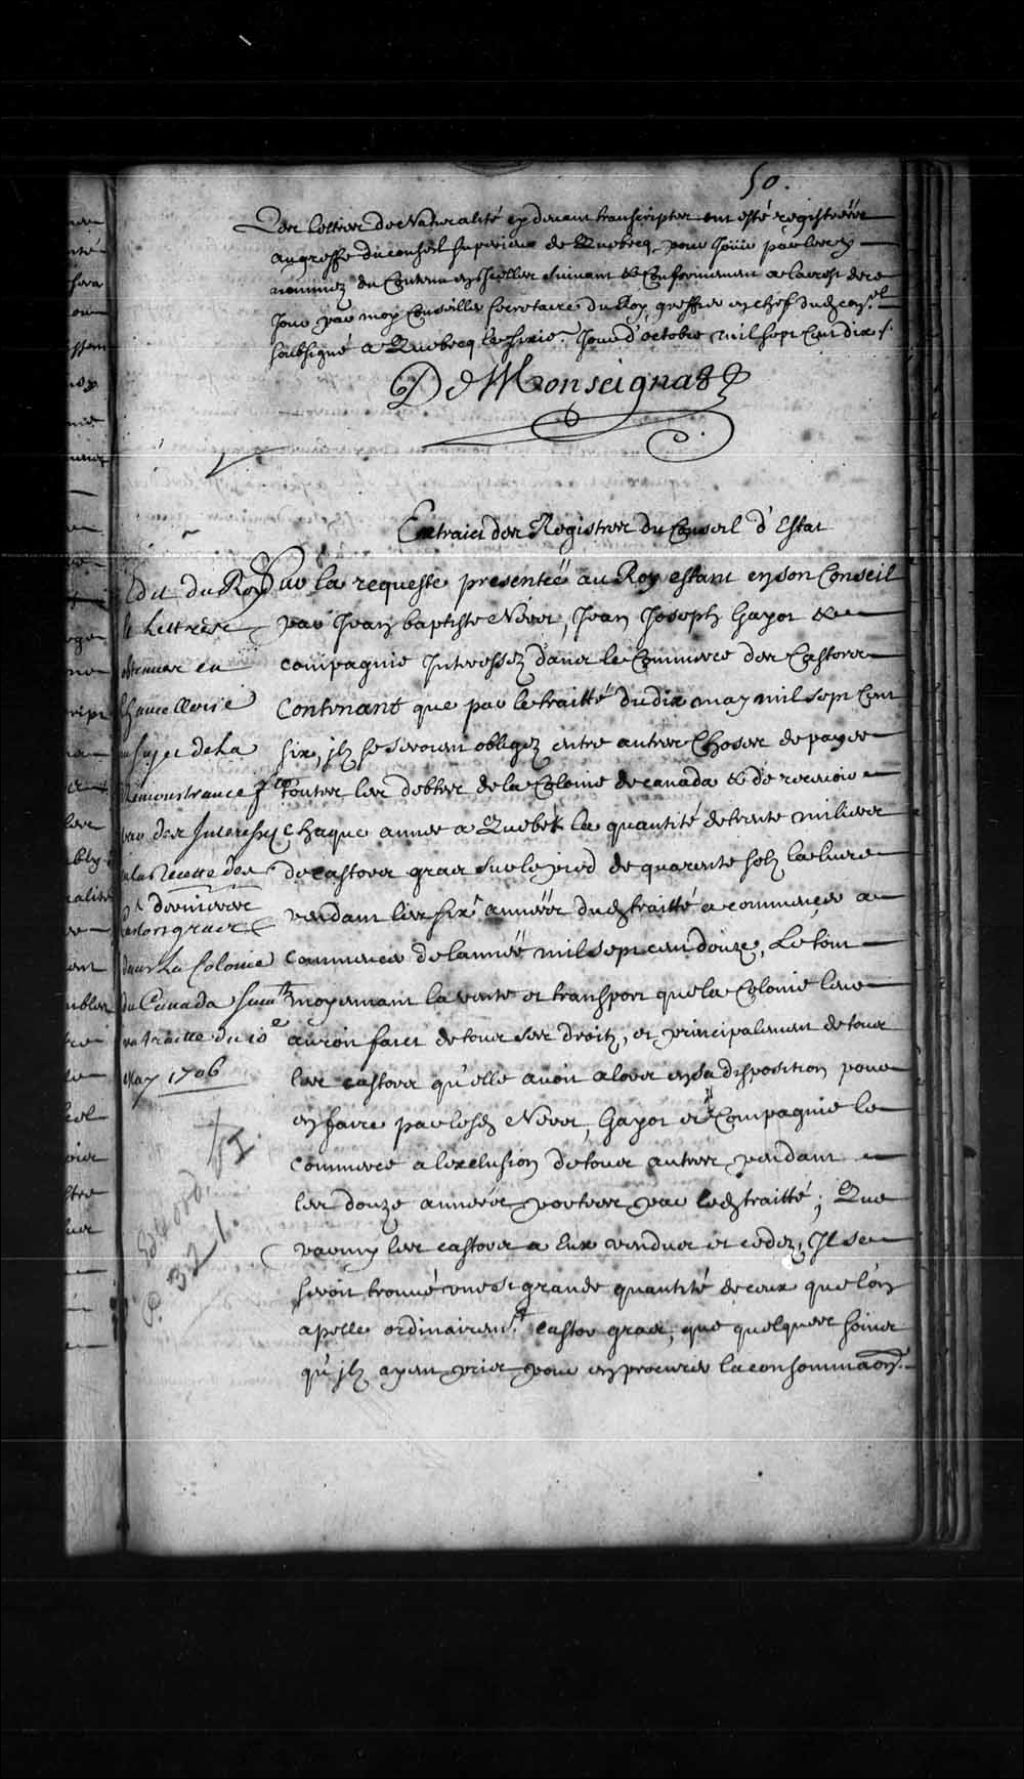 50.
Les lettres de Naturalité cy devant transcriptes ont esté registrées
au greffe du conseil superieur de Quebecq pour Jouir par les y
nommez du Contenu en Icelles suivant & Conformement a larrest de ce
Jour par moy Conseiller secretaire du Roy, greffier en chef dud. con.el
soubsigné a Quebecq le sixie. Jour d'octobre mil sept Cent dix /.
DeMonseignat
Extraict des Registres du Conseil d'Estat
Sur la requeste presentée au Roy estant en son Conseil
par Jean baptiste Néret, Jean Joseph Gayot &
compagnie Interessez dans le Commerce des Castors
Contenant que par le traitté du dix may mil sept Cent
six, jls se seroient obligez entre autres Choses de payer
toutes les debtes de la Colonie de canada & de recevoir
chaque année a Quebek la quantité de trente miliers
de castors gras sur le pied de quarente sols la livre
pendant les six. années dud. traitté a commencer a
Commencer de l'année mil sept cent douze, Le tout
moyennant la vente et transport que la Colonie leur
auroit fait de tous ses droits, et principalement de tous
les castors qu'elle avoit alors en sa disposition pour
en faire par lesd. Néret, Gayot et Compagnie le
commerce a l'exclusion de tous autres pendant
les douze années portées par led. traitté; Que
parmy les castors a Eux vendus et cedez, Il se
seroit trouvé une si grande quantité de ceux que l'on
apelle ordinairem.t castor gras, que quelques soins
qu'jls ayent pris pour en procurer la consommaon.
Edit du Roy
et Lettres
obtenues en
Chancellerie
au sujet de la
Remonstrance f.te
par des Interessez
a la Recette des
castors gras
dans La Colonie
du Canada suiv.t
un traitté du 10e
May 1706
P. 321.